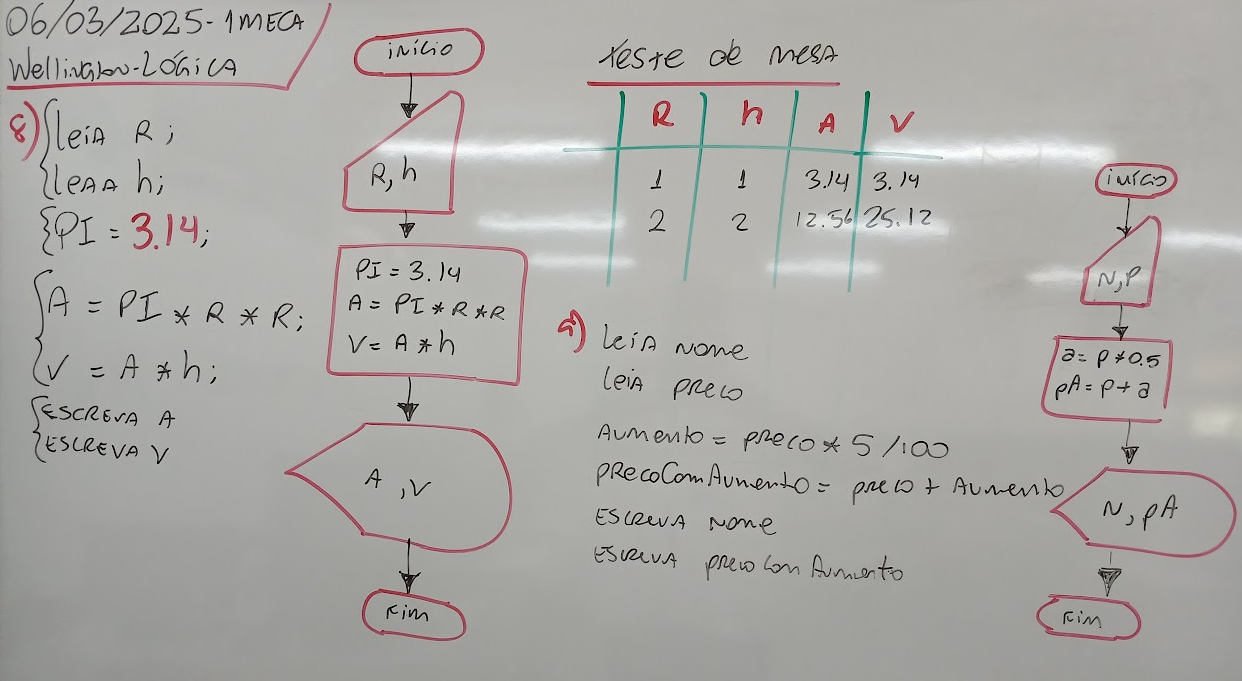 06/03/2025-1MECA
Wellington-LÓGICA
8)
leiA R;
leAA h;
PI = 3.14;
A = PI * R * R;
V = A * h;
ESCREVA A
ESCREVA V
início
R, h
PI = 3.14
A = PI * R * R
V = A * h
A, V
Fim
teste de mesa
R h A V
1 1 3.14 3.14
2 2 12.56 25.12
leiA Nome
leia preco
Aumento = preco * 5 /100
precoComAumento = preco + Aumento
ESCREVA Nome
ESCREVA precoComAumento
início
N, P
a = p * 0.5
pA = p + a
N, pA
Fim